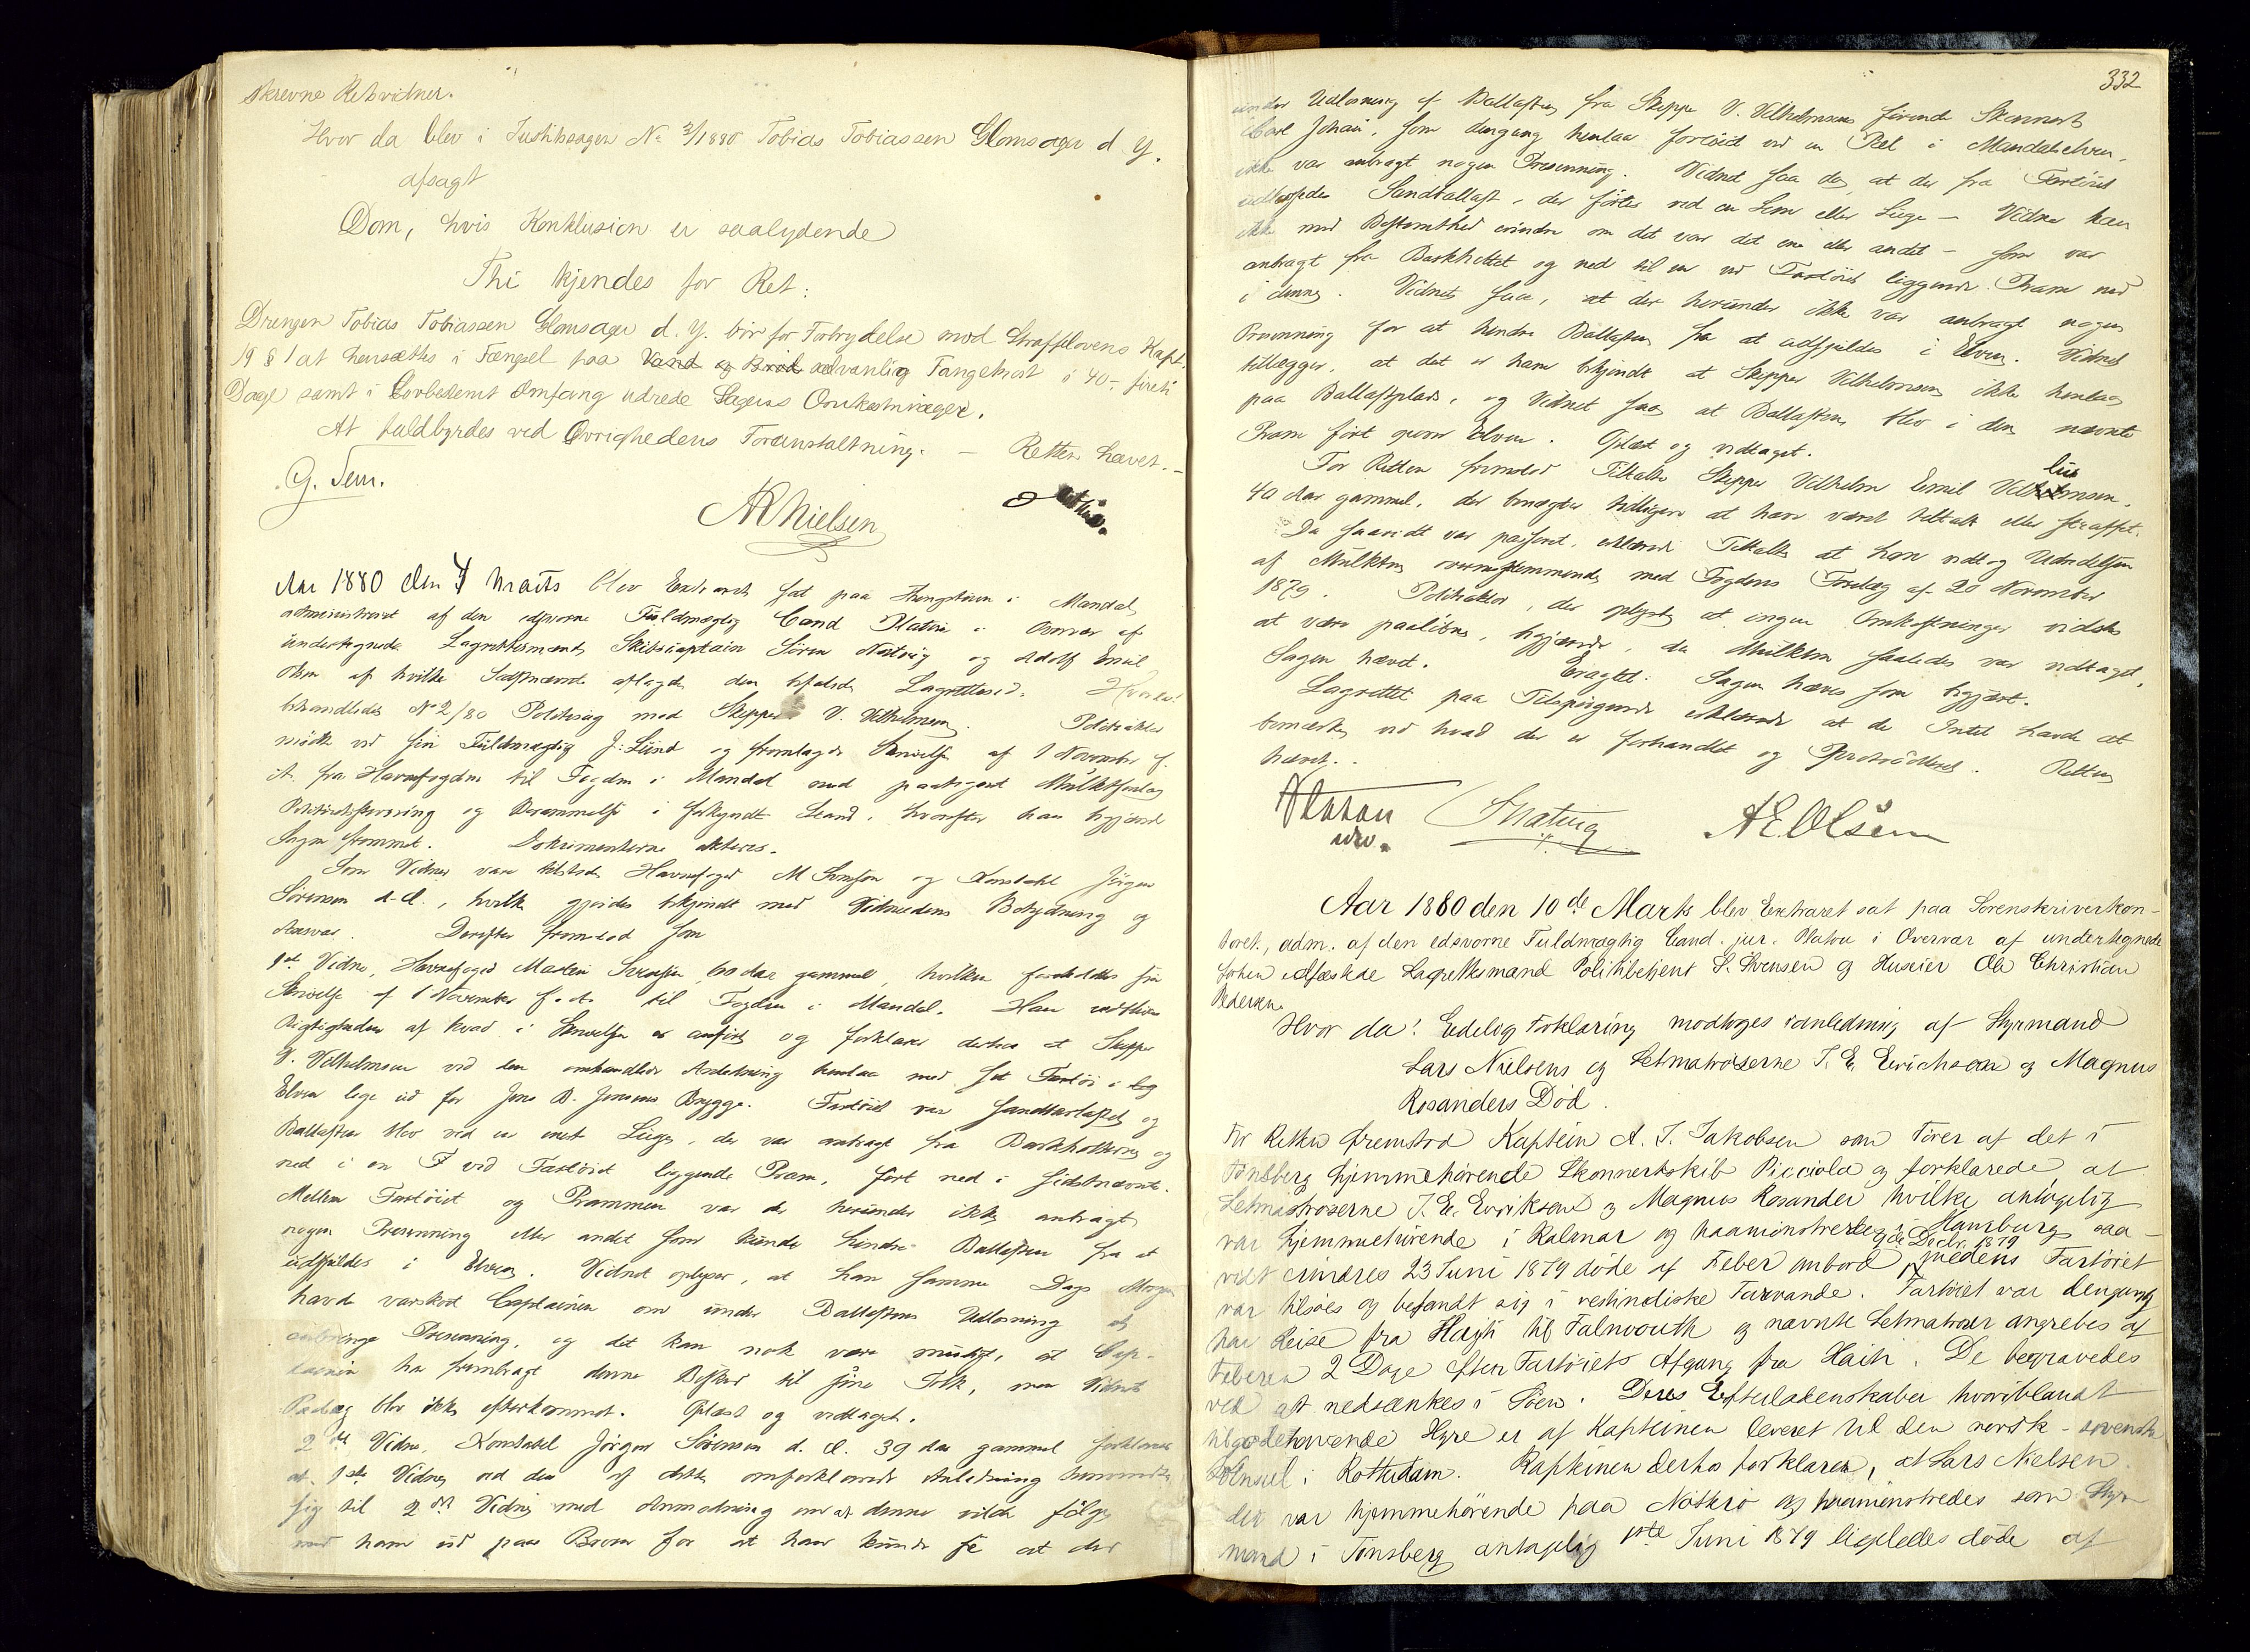 skrevne Retsvidner.
Hvor da blev i Justitssagen No 3/1880 Tobias Tobiassen Glomsager d. y.
afsagt
Dom, hvis Konklusion er saalydende
Thi kjendes for Ret:
Drengen Tobias Tobiassen Glomsager d. y. bør for Forbrydelse mod Straffelovens Kapt.
19 § 1 at hensættes i Fængsel paa Vand og Brød sedvanlig Fangekost i 40 - fireti
Dage samt i lovbestemt Omfang udrede Sagens Omkostninger.
At fuldbyrdes ved Øvrighedens Foranstaltning. — Retten hævet. -
G. Sem.
A R Nielsen
Aar 1880 den 4 Marts blev Extraret sat paa Thingstuen i Mandal,
administreret af den edsvorne Fuldmægtig Cand Platou i Overvær af
undertegnede Lagrettesmænd, Skibscaptain Sören Natvig og Adolf Emil
Olsen af hvilke Sidstnævnte aflagde den befalede Lagretteed. Hvor da!
behandledes No 2/80 Politisag mod Skipper V. Vilhelmsen. Politiaktor
mødte ved sin Fuldmægtig J. Lund og fremlagde Skrivelse af 1 November f.
A. fra Havnefogden til Fogden i Mandal med paategnet Mulktforelæg
Politiretsstevning og Berammelse i forkyndt Stand, hvorefter han begjærede
Sagen fremmet. Dokumenterne akteres.
Som Vidner var tilstede Havnefoged M Svensen og Konstabel Jörgen
Sörensen d. Æ., hvilke gjordes bekjendt med Vidneedens Betydning og
Ansvar. Derefter fremstod som
1ste Vidne, Havnefoged Martin Svensen, 60 Aar gammel, hvilken foreholdtes sin
Skrivelse af 1 November f. A. til Fogden i Mandal. Han vedtkom
Rigtigheden af hvad i Skrivelsen er anført og forklarer derhos at Skipper
V. Vilhelmsen ved den omhandlede Anledning henlaa med sit Fartöi i
Elven lige ud for Jens B. Jensens Brygge. Fartöiet var sandballastet og
Ballasten blev ved en Luge, der var anbragt fra Barkholterne og
ned i en ved Fartöiet liggende Pram, fört ned i Sidstnævnte.
Mellem Fartöiet og Prammen var der herunder ikke anbragt
nogen Presenning eller andet som kunde hindre Ballasten fra at
udspildes i Elven. Vidnet oplyser, at han samme Dags Morgen
havde varskoet Captainen om under Ballastens Udlosning at
anbringe Presenning, og det kan nok være muligt, at Cap-
tainen har frembragt denne Besked til sine Folk, men Vidnets
Paalæg blev ikke efterkommet. Oplæst og vedtaget.
2det Vidne, Konstabel Jörgen Sörensen d. Æ. 39 Aar gammel forklarer
at 1ste Vidne ved den af dette omforklarede Anledning henvendte
sig til 2det Vidne med Anmodning om at denne vilde fölge
med ham ud paa Broen for at han kunde se at der
332
under Udlosning af Ballasten fra Skipper V. Vilhelmsens förende Skonnert
Carl Johan, som dengang henlaa fortöiet ved en Pæl i Mandalselven,
ikke var anbragt nogen Presenning. Vidnet saa da, at der fra Fartöiet
udlossedes Sandballast, der förtes ved en Lem eller Luge — Vidnet kan
ikke med Bestemthed erindre om det var det ene eller andet — som var
anbragt fra Barkholtet og ned til en ved Fartöiet liggende Pram ned
i denne. Vidnet saa, at der herunder ikke var anbragt nogen
Presenning for at hindre Ballasten fra at udspildes i Elven. Vidnet
tillægger, at det er ham bekjendt at Skipper Vilhelmsen ikke henlaa
paa Ballastplads, og Vidnet saa at Ballasten blev i den nævnte
Pram fört over Elven. Oplæst og vedtaget.
For Retten fremstod Tiltalte Skipper Vilhelm Emil Vilhelmsen,
40 Aar gammel, der benægter tidligere at have været tiltalt eller straffet.
Da saavidt var passeret, erklærede Tiltalte at han vedtog Udredelsen
af Mulkten overensstemmende med Fogdens Forelæg af 20 November
1879. Politiaktor, der oplyste at ingen Omkostninger vidstes
at være paalöbne, begjærede, da Mulkten saaledes var vedtaget,
Sagen hævet. Eragtet: Sagen hæves som begjært.
Lagrettet paa Tilspörgende erklærede at de Intet havde at
bemærke ved hvad der er forhandlet og protokolleret. Retten
hævet.
Platou
edsv.
S Natvig
A E Olsen
Aar 1880 den 10de Marts blev Extraret sat paa Sorenskriverkon-
toret, adm. af den edsvorne Fuldmægtig Cand. jur. Platou i Overvær af undertegnede
foren edfæstede Lagrettesmænd Politibetjent S. Svensen og Huseier Ole Christian
Pedersen.
Hvor da! Edelig Forklaring modtoges i anledning af Styrmand
Lars Nielsens og Letmatroserne J. E. Erichsen og Magnus
Rosanders Död.
For Retten fremstod Kaptein A. J. Jakobsen som Förer af det i
Tönsberg hjemmehørende Skonnertskib Picciola og forklarede at
Letmatroserne J. E. Eriksen og Magnus Rosander hvilke antagelig
var hjemmehørende i Kalmar og paamönstredes i Hamburg saa-
vidt erindres 23 Juni 1879 døde af Feber ombord Decbr. 1879 medens Fartøiet
var tilsöes og befandt sig i vestindiske Farvande. Fartöiet var dengang
paa Reise fra Hayti til Falmouth og nævnte Letmatroser angrebes af
Feberen 2 Dage efter Fartöiets Afgang fra Haiti. De begravedes
ved at nedsænkes i Söen. Deres Efterladenskaber hvoriblandt
tilgodehavende Hyre er af Kapteinen leveret til den norsk-svenske
Konsul i Rotterdam. Kapteinen derhos forklarer, at Lars Nielsen
der var hjemmehörende paa Nötterö og paamönstredes som Styr-
mand i Tönsberg antagelig 1ste Juni 1879 ligeledes døde af